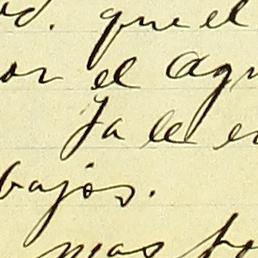 d. que el
or el Agu
Ya le e
bajos.
mas